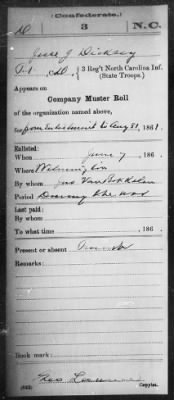 (Confederate.)
D 3 N.C.
Jesse J. Dicksey
Pvt., Co. D, 3 Reg't North Carolina Inf.
(State Troops.)
Appears on
Company Muster Roll
of the organization named above,
for from Enlistment to Aug 31, 1861.
Enlisted:
When June 7, 186 .
Where Wilmington
By whom Jas Van Bokkelen
Period During the war
Last paid:
By whom
To what time , 186 .
Present or absent Present
Remarks:
Book mark:
Geo
Copyist.